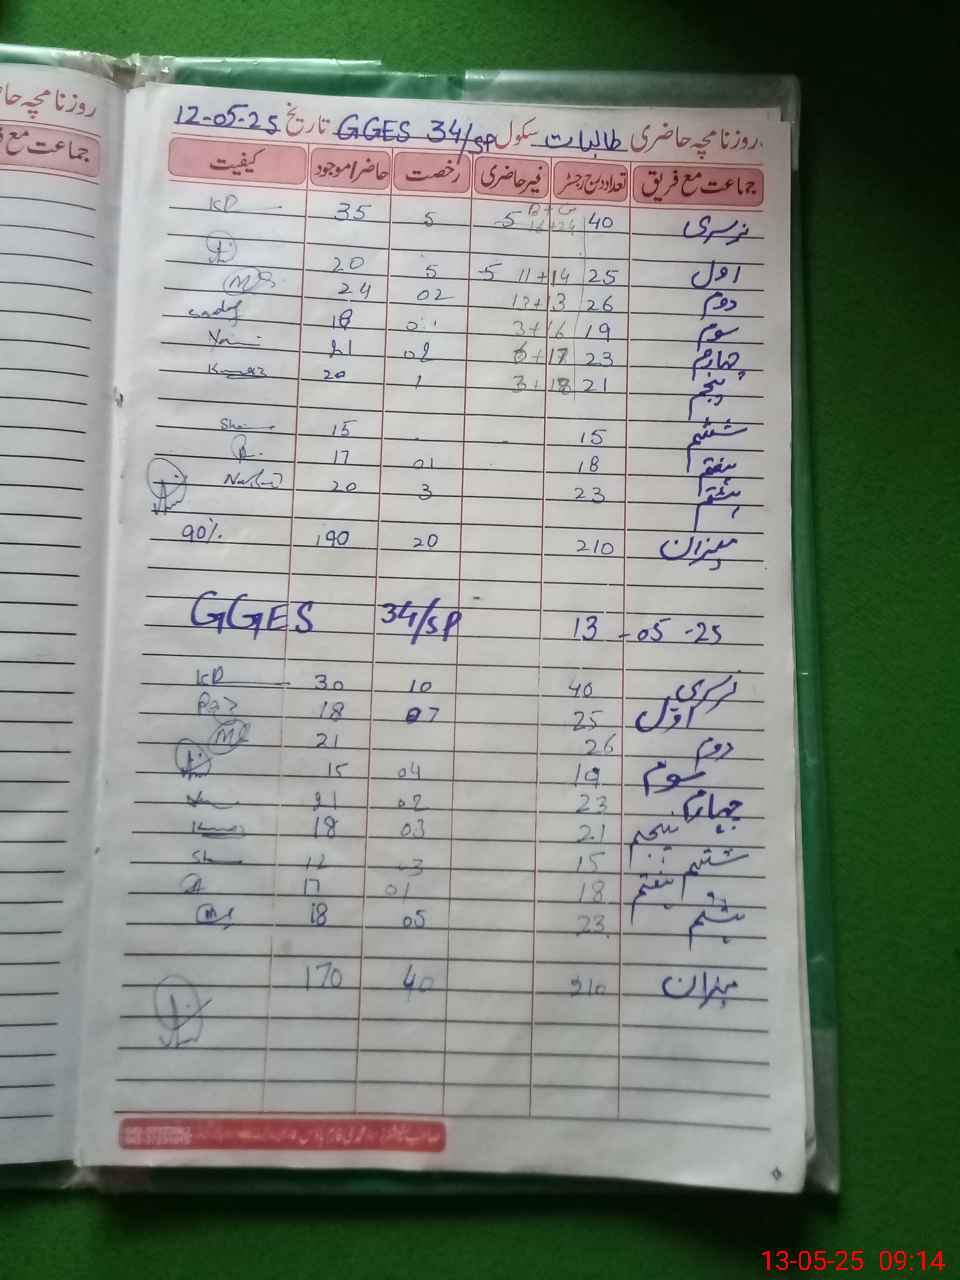 روزنامچہ حاضری طالبات سکول GGES 34/SP تاریخ 12-05-25
جماعت مع فریق تعداد درج رجسٹر غیر حاضری رخصت حاضر/موجود کیفیت
نرسری 40 5 5 35 KD
اول 25 11+14 5 5 20
دوم 26 13+13 02 24
سوم 19 3+16 01 18
چہارم 23 6+17 02 21
پنجم 21 3+18 1 20
ششم 15 15
ہفتم 18 01 17
ہشتم 23 3 20
میزان 210 20 190 90%
GGES 34/SP 13-05-25
نرسری 40 10 30 KD
اول 25 07 18
دوم 26 21
سوم 19 04 15
چہارم 23 02 21
پنجم 21 03 18
ششم 15 03 12
ہفتم 18 01 17
ہشتم 23 05 18
میزان 210 40 170
روزنامچہ
جماعت مع
13-05-25 09:14